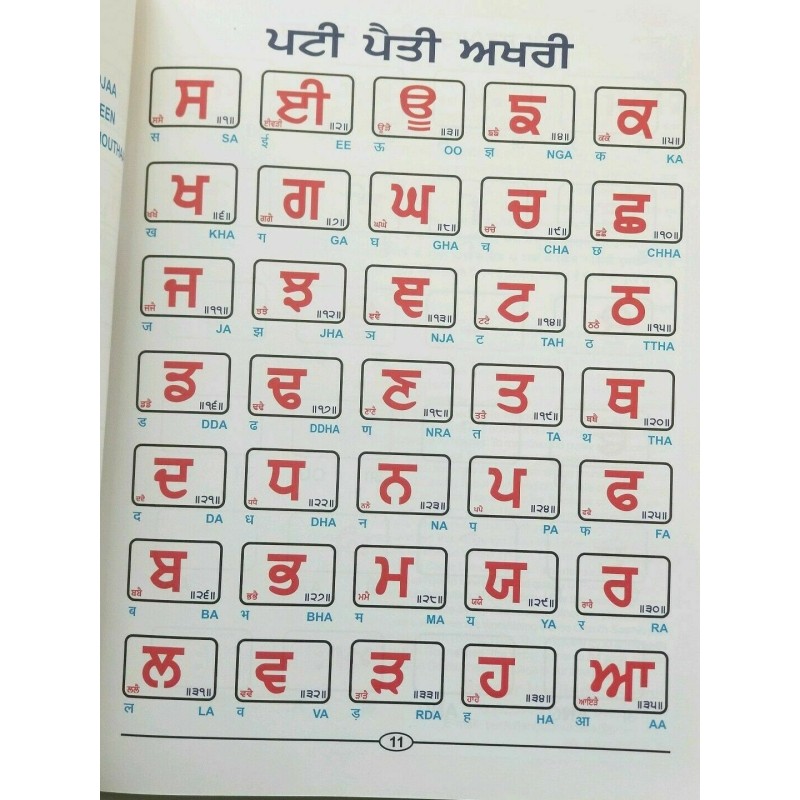 ਪਟੀ ਪੈਤੀ ਅਖਰੀ
JAA
EEN
MOUTHA
ਸ ਈ ਊ ਙ ਕ
ਸਸੈ ॥੧॥ ਈਵੜੀ ॥੨॥ ਊੜੈ ॥੩॥ ਙਙੈ ॥੪॥ ਕਕੈ ॥੫॥
स SA ई EE ऊ OO ज्ञ NGA क KA
ਖ ਗ ਘ ਚ ਛ
ਖਖੈ ॥੬॥ ਗਗੈ ॥੭॥ ਘਘੈ ॥੮॥ ਚਚੈ ॥੯॥ ਛਛੈ ॥੧੦॥
ख KHA ग GA घ GHA च CHA छ CHHA
ਜ ਝ ਞ ਟ ਠ
ਜਜੈ ॥੧੧॥ ਝਝੈ ॥੧੨॥ ਞਞੈ ॥੧੩॥ ਟਟੈ ॥੧੪॥ ਠਠੈ ॥੧੫॥
ज JA झ JHA ञ NJA ट TAH ठ TTHA
ਡ ਢ ਣ ਤ ਥ
ਡਡੈ ॥੧੬॥ ਢਢੈ ॥੧੭॥ ਣਾਣੈ ॥੧੮॥ ਤਤੈ ॥੧੯॥ ਥਥੈ ॥੨੦॥
ड DDA ढ DDHA ण NRA त TA थ THA
ਦ ਧ ਨ ਪ ਫ
ਦਦੈ ॥੨੧॥ ਧਧੈ ॥੨੨॥ ਨਨੈ ॥੨੩॥ ਪਪੈ ॥੨੪॥ ਫਫੈ ॥੨੫॥
द DA ध DHA न NA प PA फ FA
ਬ ਭ ਮ ਯ ਰ
ਬਬੈ ॥੨੬॥ ਭਭੈ ॥੨੭॥ ਮਮੈ ॥੨੮॥ ਯਯੈ ॥੨੯॥ ਰਾਰੈ ॥੩੦॥
ब BA भ BHA म MA य YA र RA
ਲ ਵ ੜ ਹ ਆ
ਲਲੈ ॥੩੧॥ ਵਵੈ ॥੩੨॥ ੜਾੜੈ ॥੩੩॥ ਹਾਹੈ ॥੩੪॥ ਆਇੜੈ ॥੩੫॥
ल LA व VA ड़ RDA ह HA आ AA
11